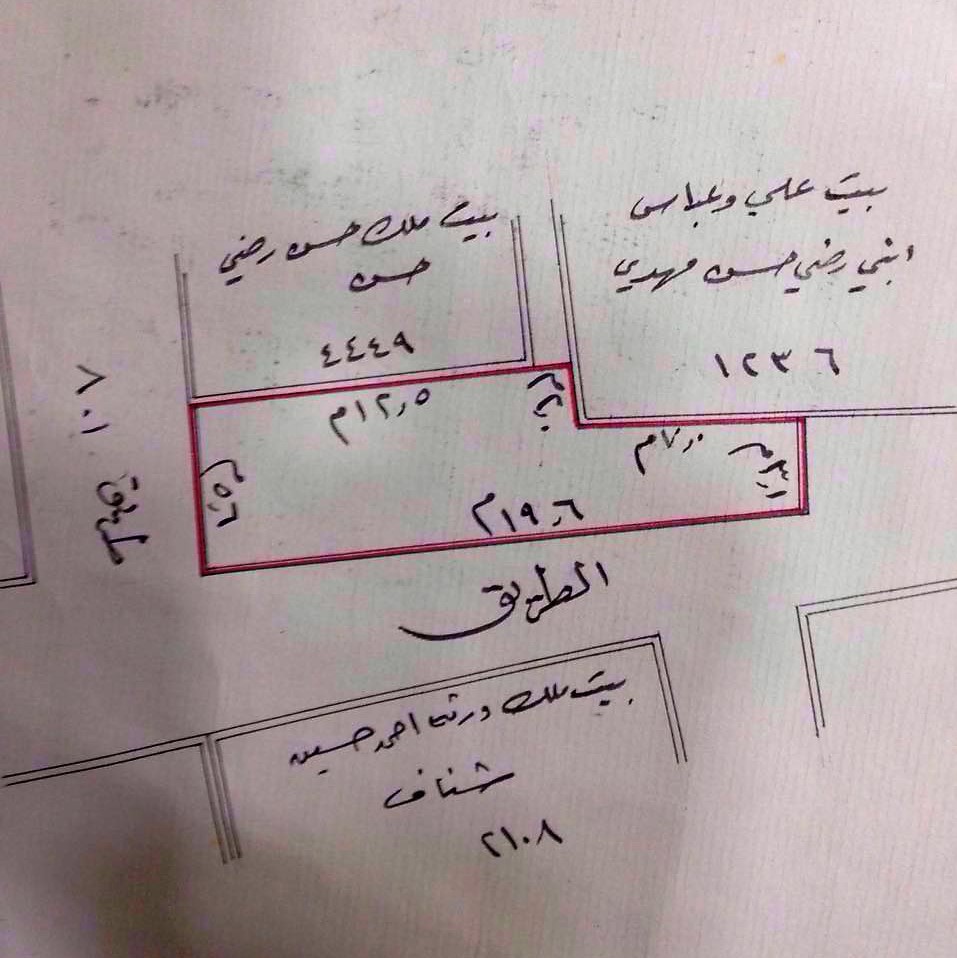 بيت علي وعباس
ابني رضي حسن مهدي
١٢٣٦
بيت ملك حسن رضي
حسن
٤٤٤٩
١٢,٥م
٢,٠م
٧,٠م
٣,١م
٥,٦م
١٩,٦م
طريق ٨٠١
الطريق
بيت ملك ورثة احمد حسين
شناف
٢١٠٨